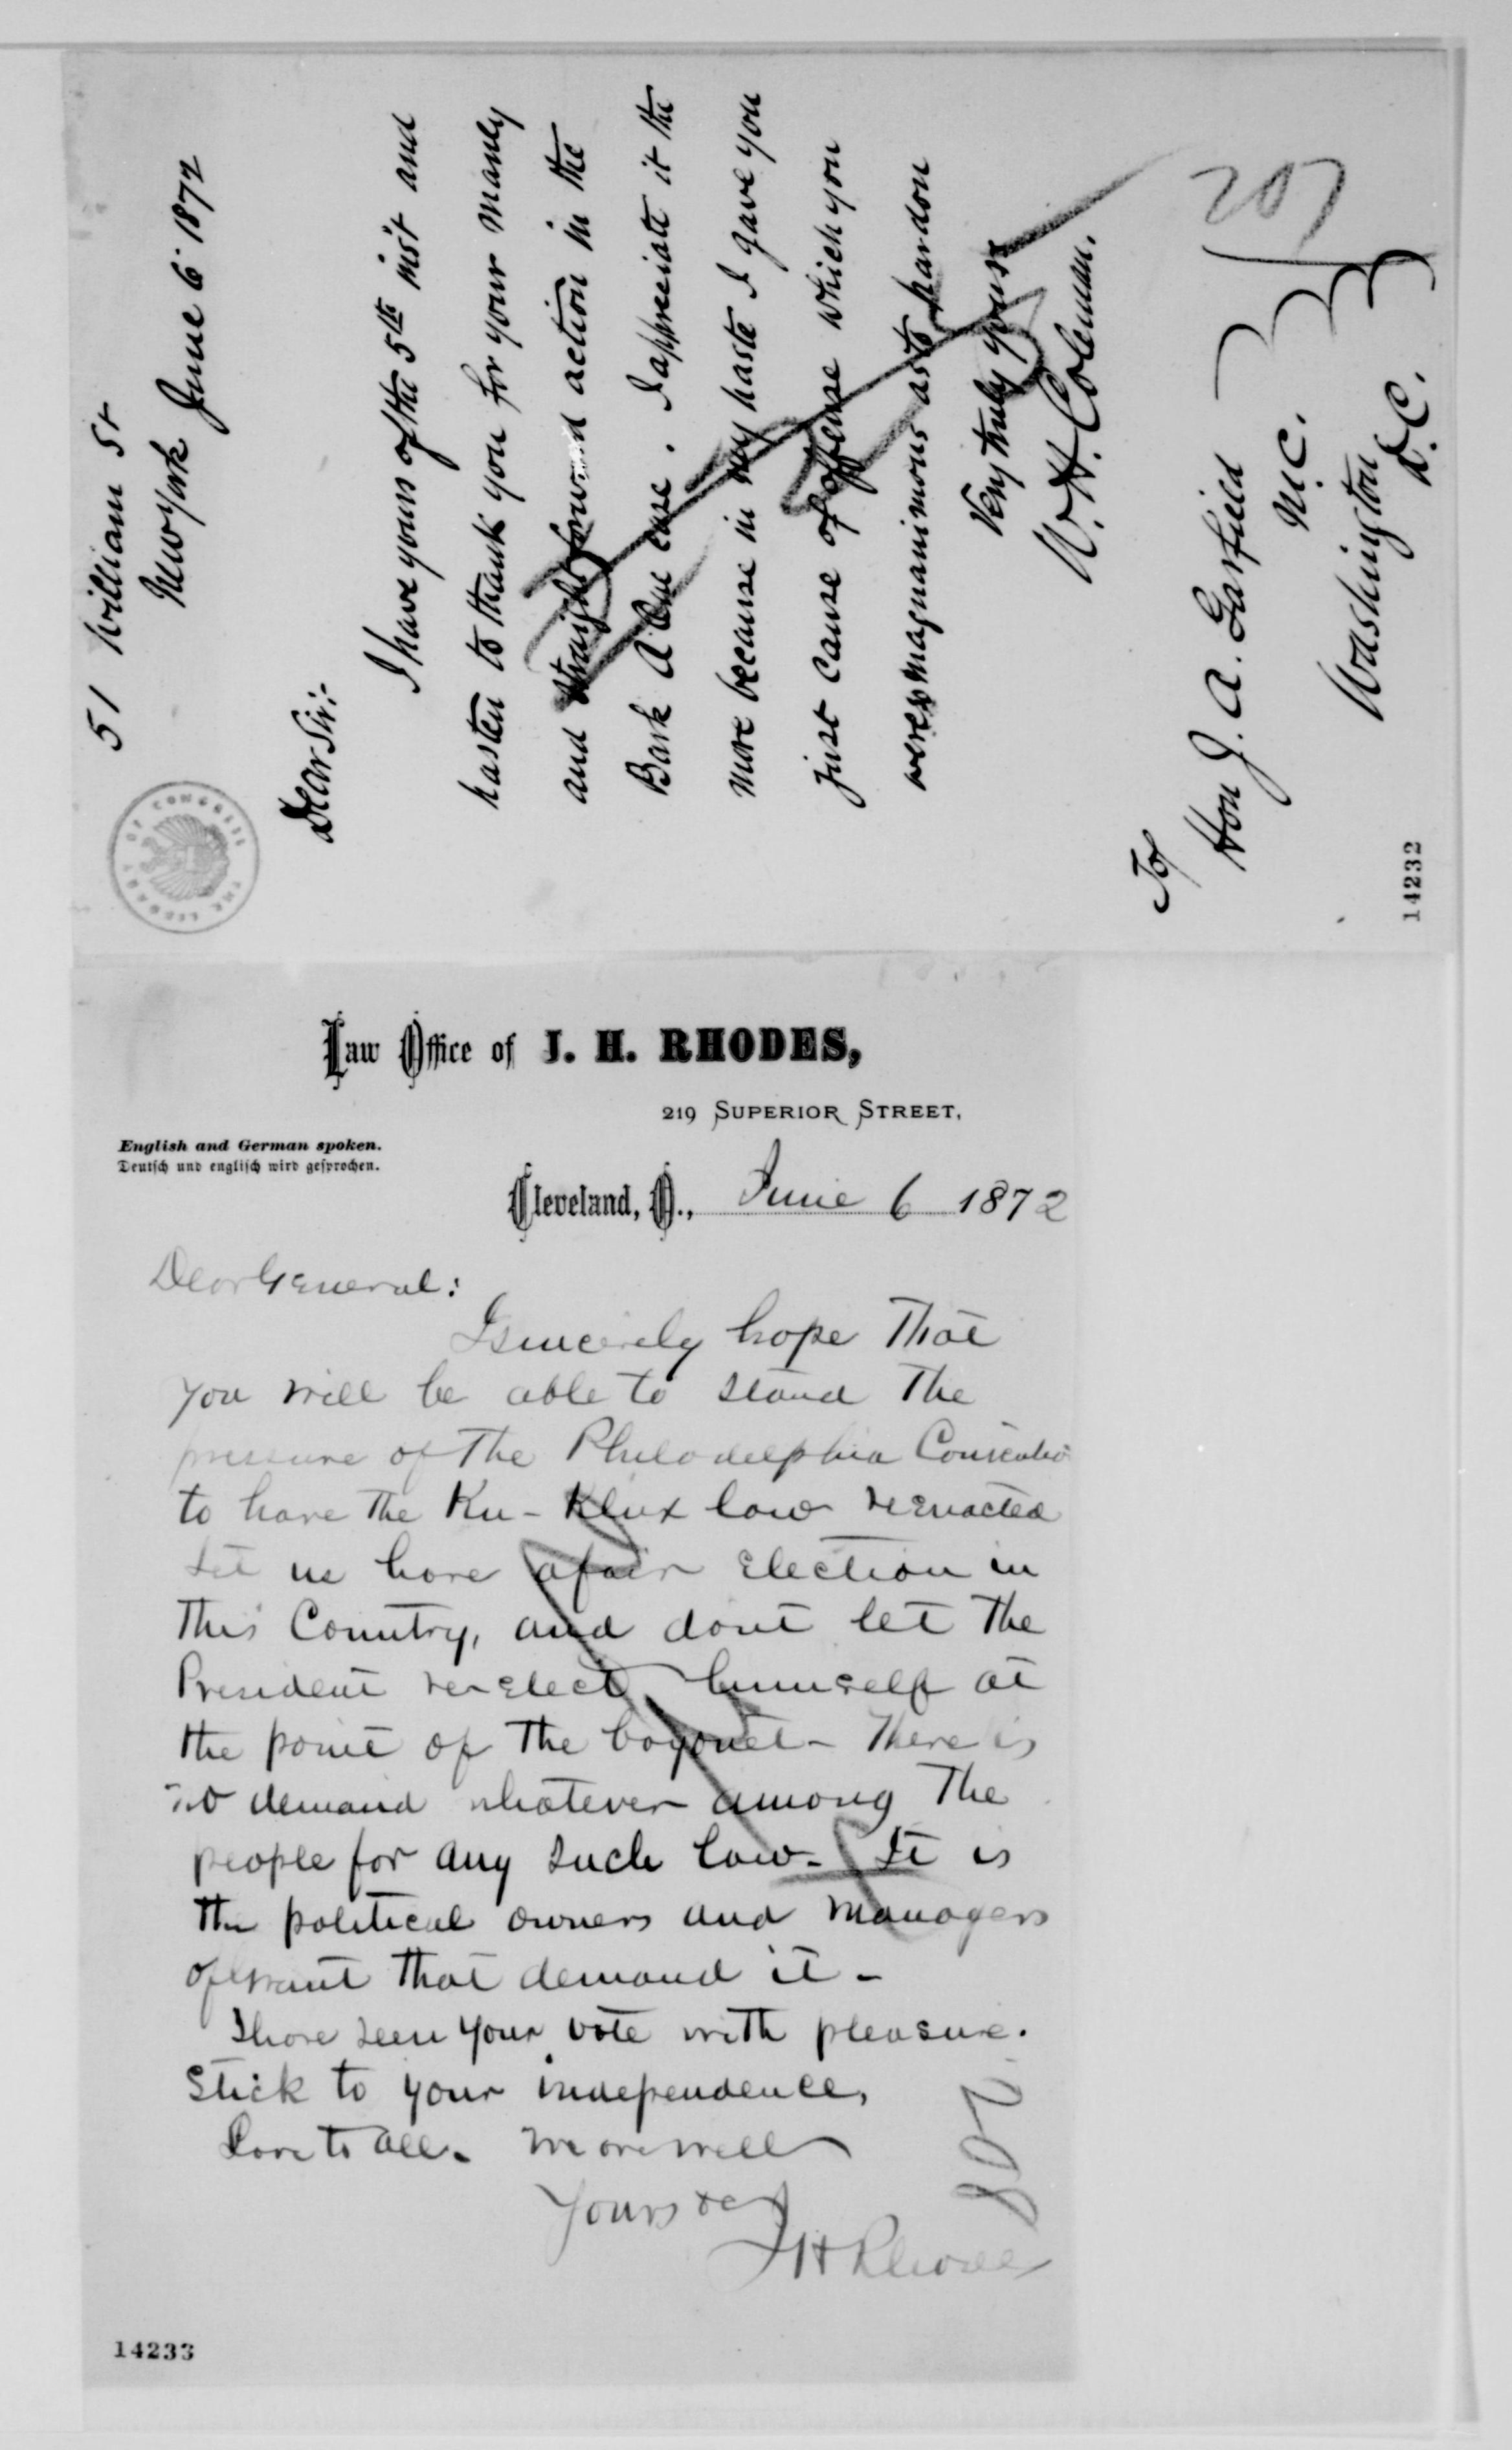 51 William St
New York June 6 1872
Dear Sir:-
I have yours of the 5th inst and
hasten to thank you for your manly
and straight forward action in the
Bank case. I appreciate it the
more because in my haste I gave you
just cause of offense which you
were magnanimous as to pardon
Very truly yours
W. H. Coleman.
To
Hon J. A. Garfield
M.C.
Washington
D.C.
207
THE LIBRARY OF CONGRESS
14232
Law Office of J. H. RHODES,
219 SUPERIOR STREET,
English and German spoken.
Deutsch und englisch wird gesprochen.
Cleveland, O., June 6 1872
Dear General:
I sincerely hope that
you will be able to stand the
pressure of the Philadelphia Conventio
to have the Ku-Klux law reenacted
Let us have a fair election in
this Country, and dont let the
President re-elect himself at
the point of the bayonet - There is
no demand whatever among the
people for any such law - It is
the political owners and managers
of Grant that demand it -
I have seen your vote with pleasure.
Stick to your independence,
Love to all. We are well
Yours &c
J H Rhodes
208
14233